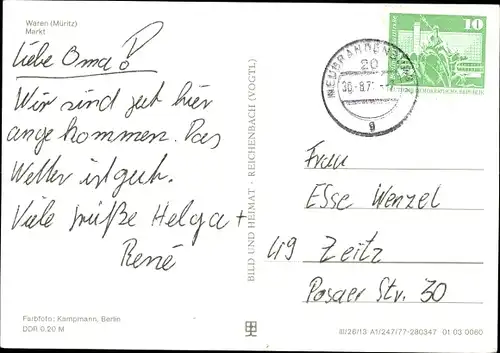 Waren (Müritz)
Markt
Liebe Oma!
Wir sind gut hier
angekommen. Das
Wetter ist gut.
Viele Grüße Helga +
René
Farbfoto: Kampmann, Berlin
DDR 0.20 M
BILD UND HEIMAT · REICHENBACH (VOGTL)
NEUBRANDENBURG
20
30.-8.7
g
10
DEUTSCHE DEMOKRATISCHE REPUBLIK
Frau
Else Wenzel
49 Zeitz
Posaer Str. 30
III/26/13 A1/247/77-280347 01 03 0060